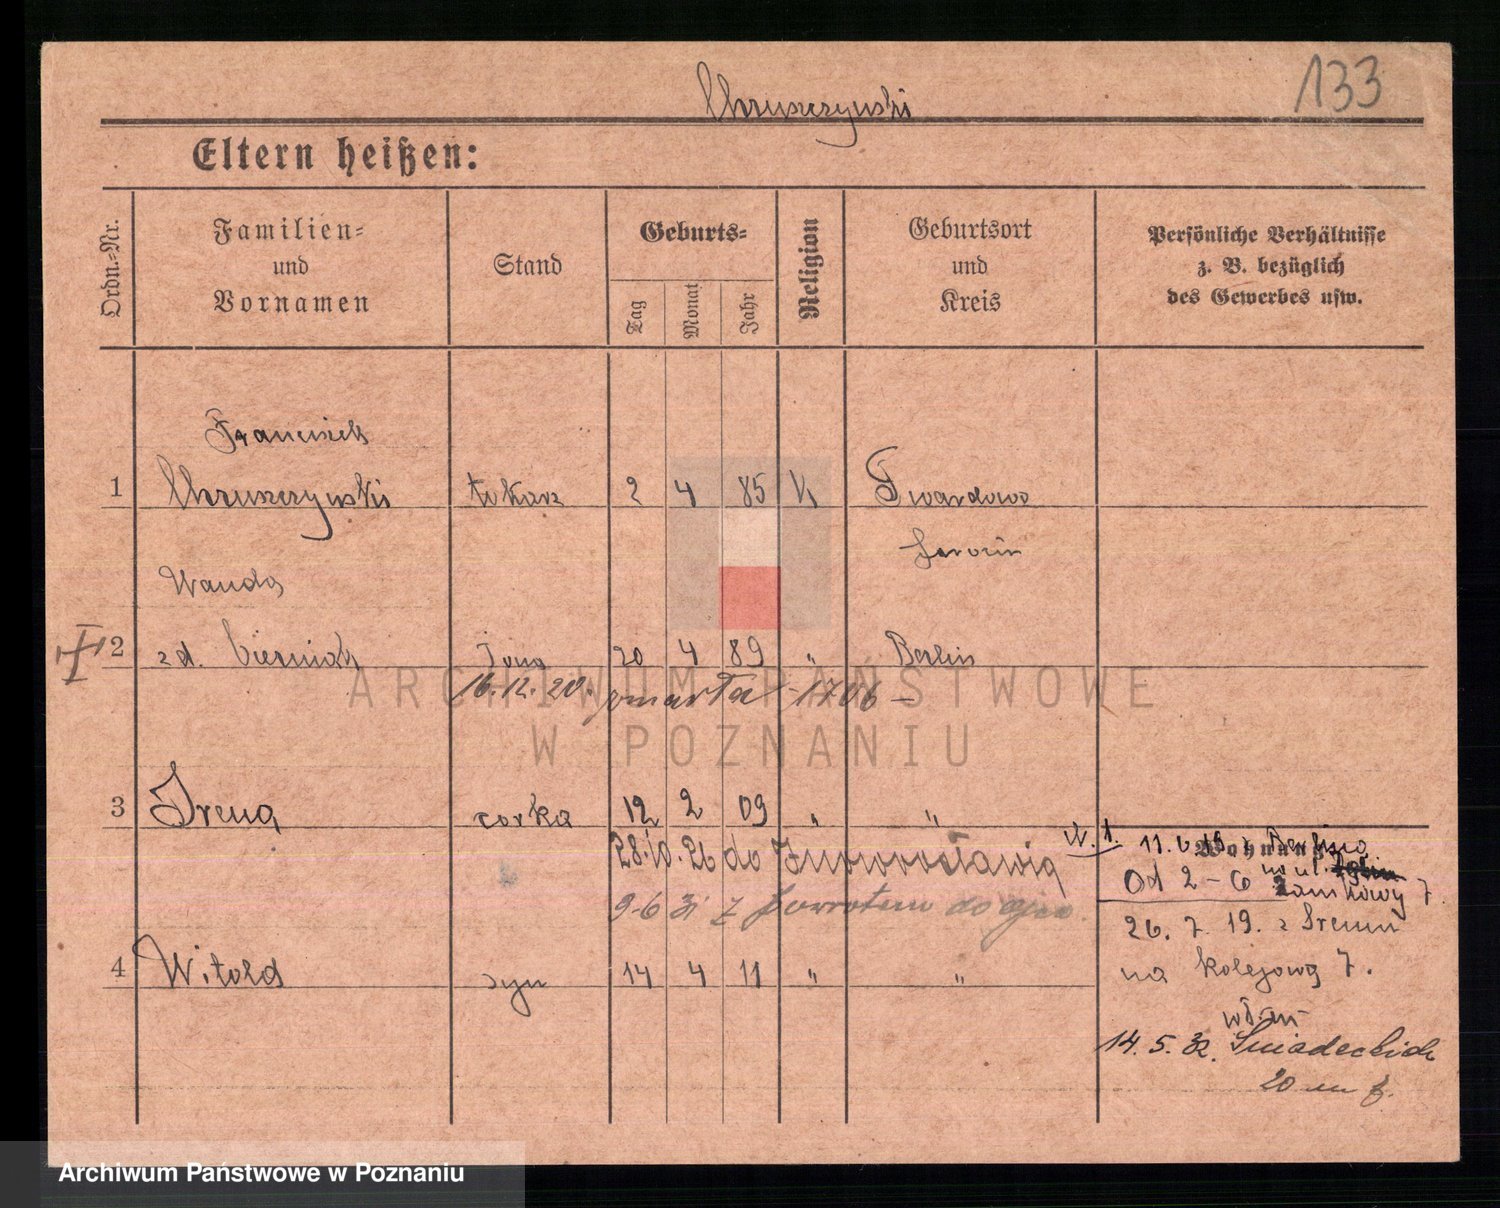 133
Chruszczyński
Eltern heißen:
Ordn.-Nr.
Familien-
und
Vornamen
Stand
Geburts-
Tag
Monat
Jahr
Religion
Geburtsort
und
Kreis
Persönliche Verhältnisse
z. B. bezüglich
des Gewerbes usw.
Franciszek
1 Chruszczyński tokarz 2 4 85 K Twardowo
Jarocin
Wanda
2 zd. Cierniak żona 20 4 89 " Berlin
16.12.20. zmarła 1706 –
3 Irena corka 12 2 09 " "
28.10.26 do Inowrocławia
9.6 31 z powrotem do ojca.
4 Witold syn 14 4 11 " "
Wohnung
11. 6 19 z Berlina
Od 2-6 na ul.
Zamkowy 7.
26. 7. 19. z Śremu
na Kolejową 7.
14. 5. 32. Śniadeckich
20 m
ARCHIWUM PAŃSTWOWE
W POZNANIU
Archiwum Państwowe w Poznaniu